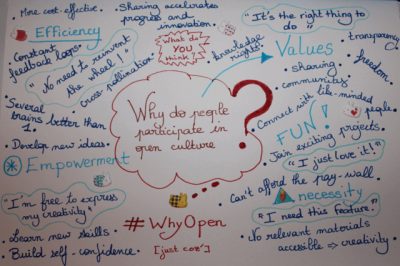 • More cost-effective.
• Sharing accelerates
progress and
innovation.
* Efficiency
• Constant
feedback loops.
"No need to reinvent
the wheel!"
• cross pollination
• Several
brains better than
1.
• Develop new ideas.
* Empowerment
"I'm free to express
my creativity"
• Learn new skills
• Build self-confidence.
What do
YOU
think?
Why do people
participate in
open culture
?
#WhyOpen
[just cos']
"It's the right thing to
do"
• knowledge
rights!
Values
• transparency
• sharing
• freedom.
• community
• Connect with like-minded
people.
FUN!
• Join exciting projects.
"I just love it!"
• Can't afford the pay-wall
necessity
"I need this feature."
• No relevant materials
accessible => creativity.